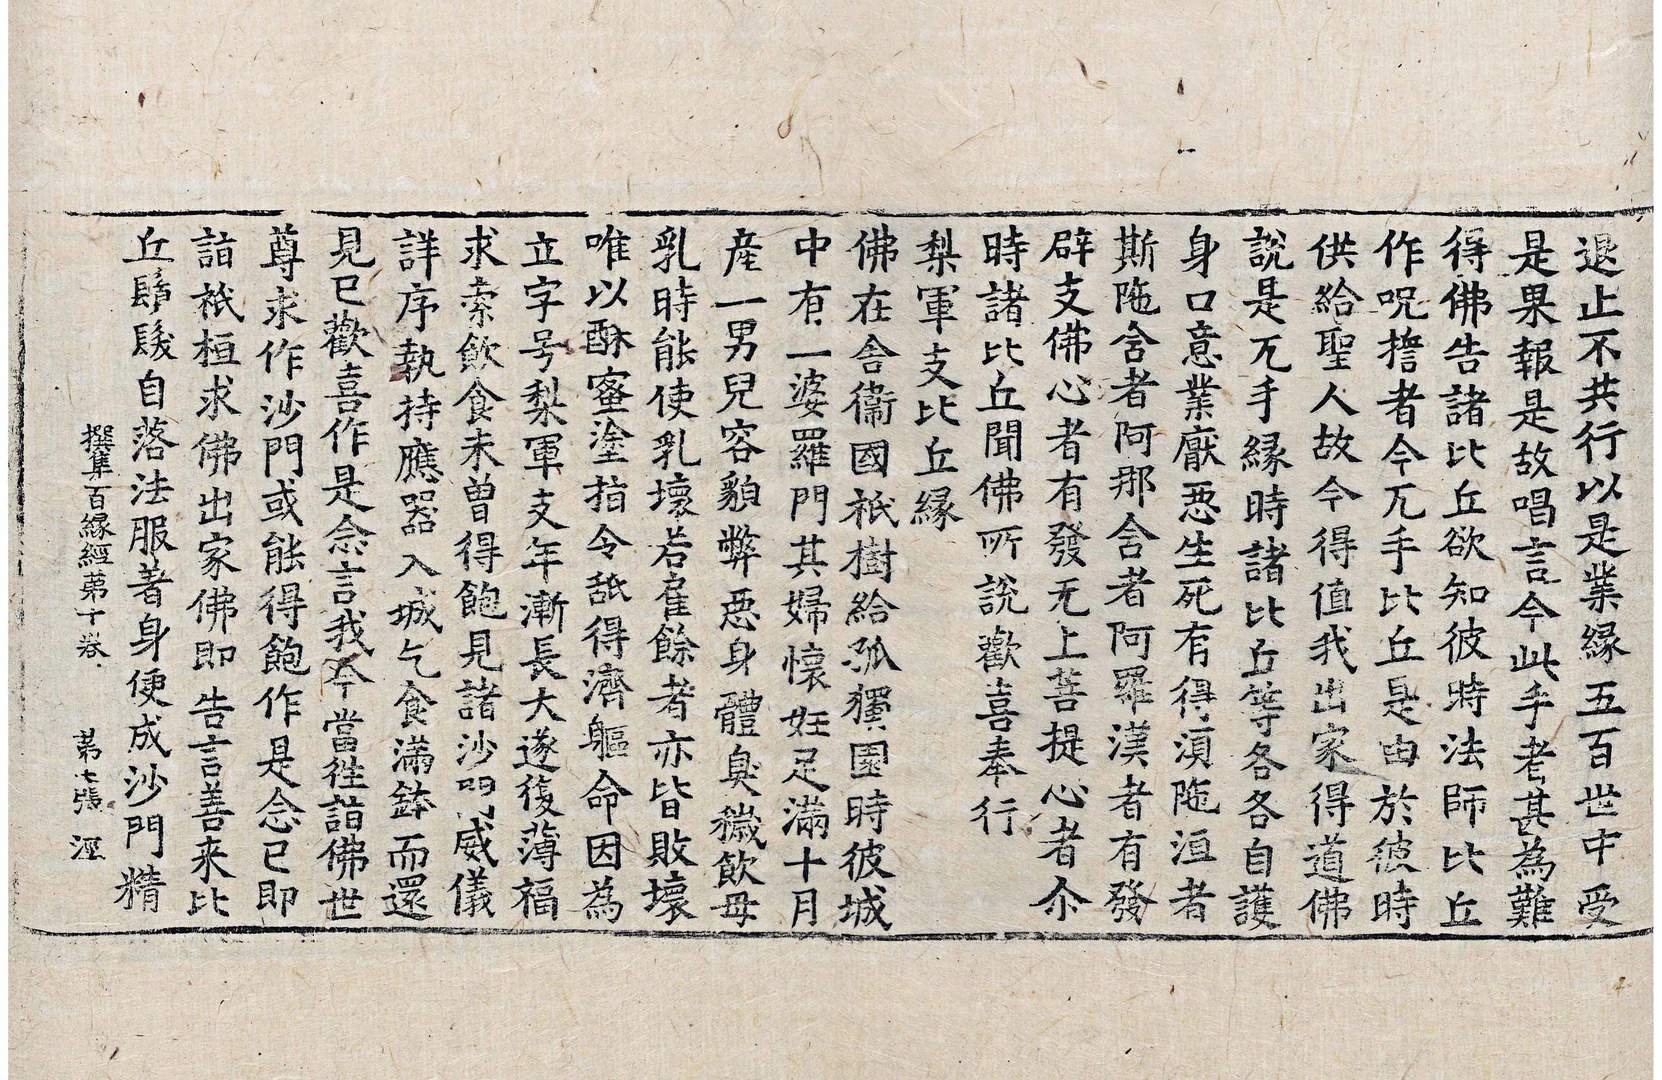 退止不共行以是業緣五百世中受
是果報是故唱言今此手者甚為難
得佛告諸比丘欲知彼時法師比丘
作呪擔者今兀手比丘是由於彼時
供給聖人故今得值我出家得道佛
說是兀手緣時諸比丘等各各自護
身口意業厭惡生死有得湏陁洹者
斯陁含者阿那含者阿羅漢者有發
辟支佛心者有發无上菩提心者尒
時諸比丘聞佛所說歡喜奉行
梨軍支比丘緣
佛在舍衞國祇樹給孤獨園時彼城
中有一婆羅門其婦懷妊足滿十月
産一男兒容貌弊惡身體臭穢飲母
乳時能使乳壞若雇餘者亦皆敗壞
唯以酥蜜塗指令舐得濟軀命因為
立字号梨軍支年漸長大遂復薄福
求索飲食未曾得飽見諸沙門威儀
詳序執持應器入城乞食滿鉢而還
見已歡喜作是念言我今當往詣佛世
尊求作沙門或能得飽作是念已即
詣祇桓求佛出家佛即告言善来比
丘鬚髮自落法服著身便成沙門精
撰集百緣經苐十卷 苐七張 溼